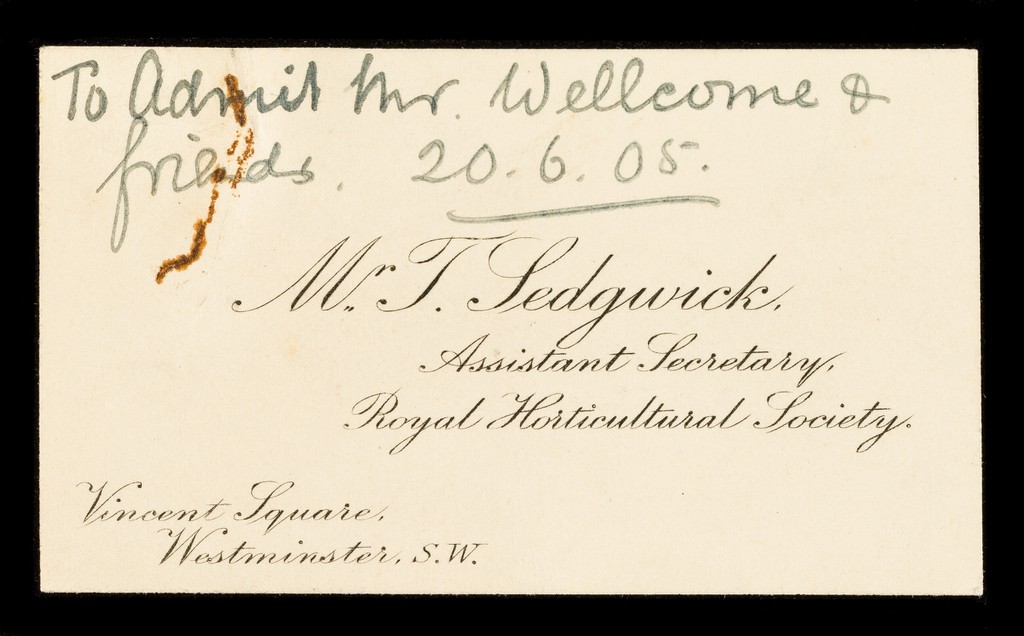 To Admit Mr. Wellcome &
friends. 20.6.05.
Mr. T. Sedgwick,
Assistant Secretary,
Royal Horticultural Society.
Vincent Square,
Westminster, S.W.